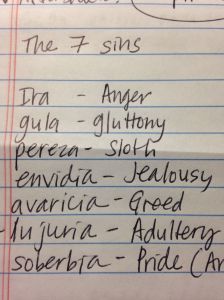 The 7 sins
Ira - Anger
gula - gluttony
pereza - Sloth
envidia - Jealousy
avaricia - Greed
lujuria - Adultery
soberbia - Pride (Ar